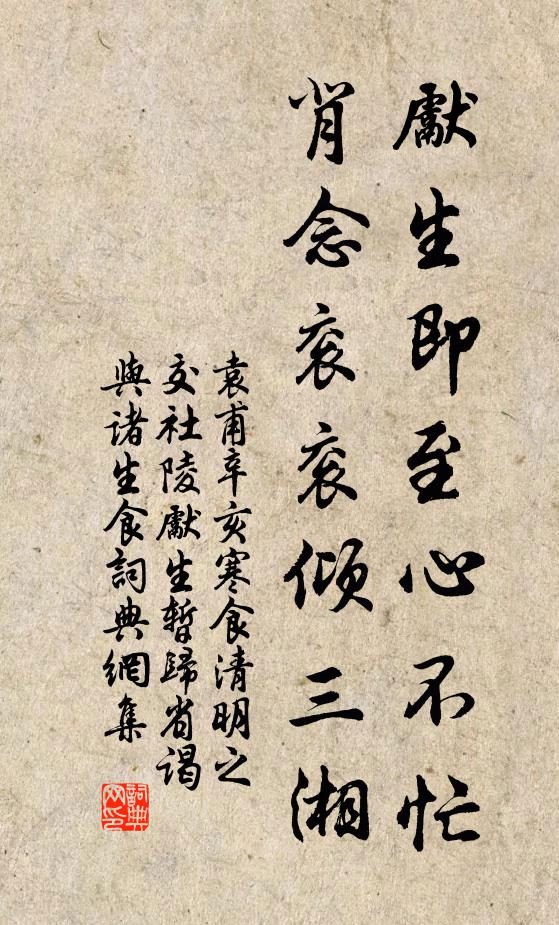 獻生即至心不忙
肯念衮衮傾三湘
袁甫辛亥寒食清明之
交社陵獻生暫歸省謁
與諸生食詞典網集
詞典網印